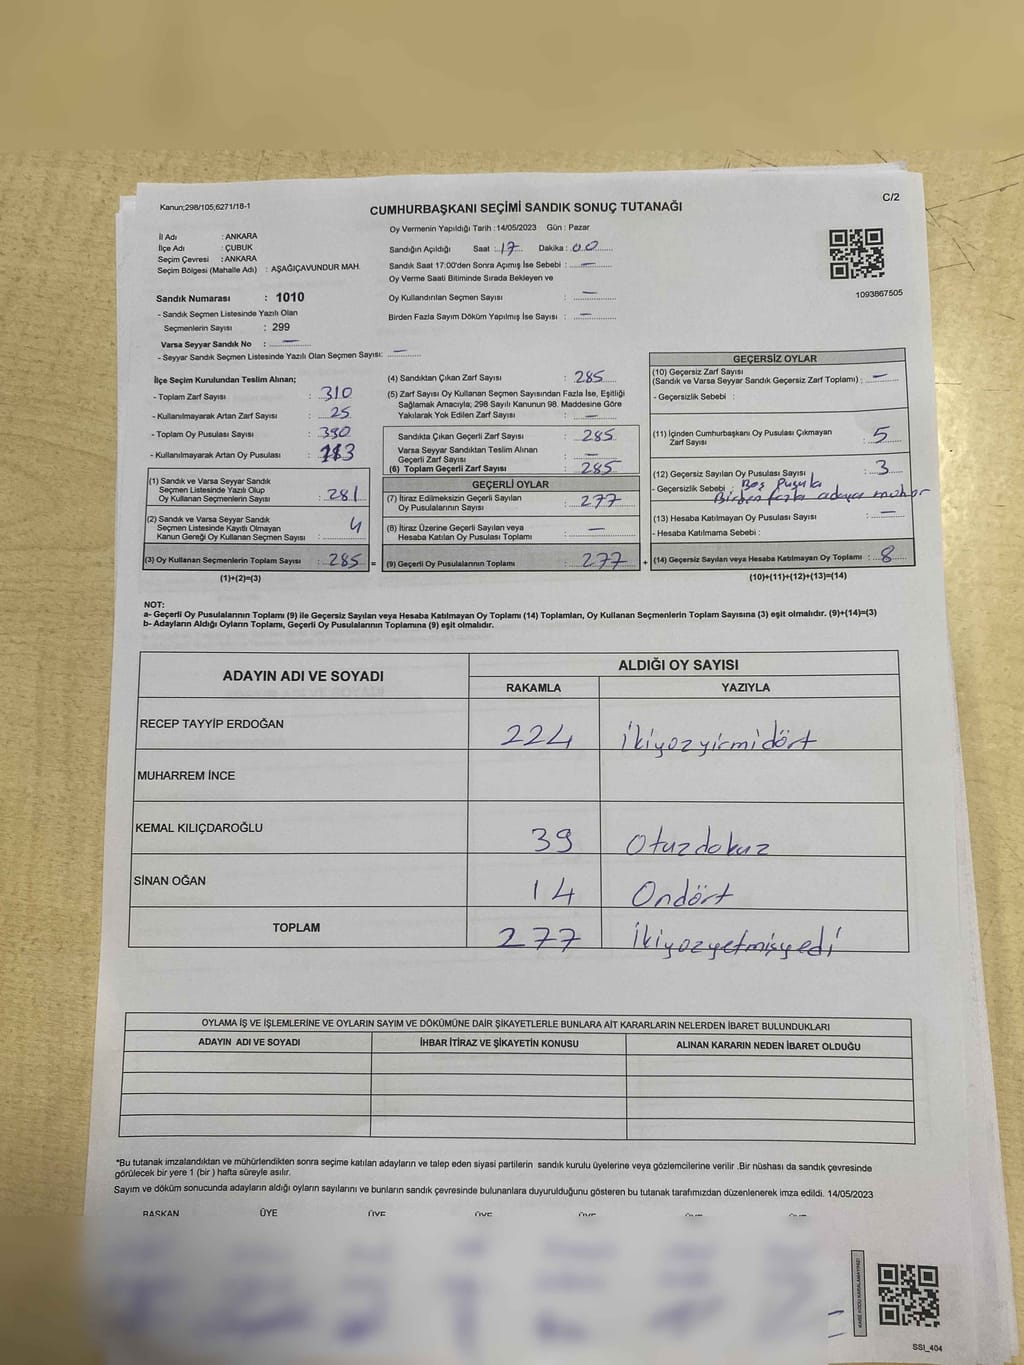 Kanun;298/105;6271/18-1
C/2
CUMHURBAŞKANI SEÇİMİ SANDIK SONUÇ TUTANAĞI
İl Adı : ANKARA
İlçe Adı : ÇUBUK
Seçim Çevresi : ANKARA
Seçim Bölgesi (Mahalle Adı) : AŞAĞIÇAVUNDUR MAH.
Sandık Numarası : 1010
- Sandık Seçmen Listesinde Yazılı Olan
Seçmenlerin Sayısı : 299
Varsa Seyyar Sandık No : —
- Seyyar Sandık Seçmen Listesinde Yazılı Olan Seçmen Sayısı: —
Oy Vermenin Yapıldığı Tarih :14/05/2023 Gün : Pazar
Sandığın Açıldığı Saat : 17 Dakika : 00
Sandık Saat 17:00'den Sonra Açımış İse Sebebi : —
Oy Verme Saati Bitiminde Sırada Bekleyen ve
Oy Kullandırılan Seçmen Sayısı : —
Birden Fazla Sayım Döküm Yapılmış İse Sayısı : —
1093867505
İlçe Seçim Kurulundan Teslim Alınan;
- Toplam Zarf Sayısı : 310
- Kullanılmayarak Artan Zarf Sayısı : 25
- Toplam Oy Pusulası Sayısı : 390
- Kullanılmayarak Artan Oy Pusulası :
(1) Sandık ve Varsa Seyyar Sandık
Seçmen Listesinde Yazılı Olup
Oy Kullanan Seçmenlerin Sayısı : 281
(2) Sandık ve Varsa Seyyar Sandık
Seçmen Listesinde Kayıtlı Olmayan
Kanun Gereği Oy Kullanan Seçmen Sayısı : 4
(3) Oy Kullanan Seçmenlerin Toplam Sayısı : 285 =
(1)+(2)=(3)
(4) Sandıktan Çıkan Zarf Sayısı : 285
(5) Zarf Sayısı Oy Kullanan Seçmen Sayısından Fazla İse, Eşitliği
Sağlamak Amacıyla; 298 Sayılı Kanunun 98. Maddesine Göre
Yakılarak Yok Edilen Zarf Sayısı : —
Sandıkta Çıkan Geçerli Zarf Sayısı : 285
Varsa Seyyar Sandıktan Teslim Alınan
Geçerli Zarf Sayısı : —
(6) Toplam Geçerli Zarf Sayısı : 285
GEÇERLİ OYLAR
(7) İtiraz Edilmeksizin Geçerli Sayılan
Oy Pusulalarının Sayısı : 277
(8) İtiraz Üzerine Geçerli Sayılan veya
Hesaba Katılan Oy Pusulası Toplamı : —
(9) Geçerli Oy Pusulalarının Toplamı : 277 +
GEÇERSİZ OYLAR
(10) Geçersiz Zarf Sayısı
(Sandık ve Varsa Seyyar Sandık Geçersiz Zarf Toplamı) : —
- Geçersizlik Sebebi :
(11) İçinden Cumhurbaşkanı Oy Pusulası Çıkmayan
Zarf Sayısı : 5
(12) Geçersiz Sayılan Oy Pusulası Sayısı : 3
- Geçersizlik Sebebi : Boş Pusula
Birden fazla adaya mühür
(13) Hesaba Katılmayan Oy Pusulası Sayısı : —
- Hesaba Katılmama Sebebi :
(14) Geçersiz Sayılan veya Hesaba Katılmayan Oy Toplamı : 8
(10)+(11)+(12)+(13)=(14)
NOT:
a- Geçerli Oy Pusulalarının Toplamı (9) ile Geçersiz Sayılan veya Hesaba Katılmayan Oy Toplamı (14) Toplamları, Oy Kullanan Seçmenlerin Toplam Sayısına (3) eşit olmalıdır. (9)+(14)=(3)
b- Adayların Aldığı Oyların Toplamı, Geçerli Oy Pusulalarının Toplamına (9) eşit olmalıdır.
ADAYIN ADI VE SOYADI
ALDIĞI OY SAYISI
RAKAMLA YAZIYLA
RECEP TAYYİP ERDOĞAN 224 İkiyozyirmidört
MUHARREM İNCE
KEMAL KILIÇDAROĞLU 39 Otuzdokuz
SİNAN OĞAN 14 Ondört
TOPLAM 277 İkiyozyetmişyedi
OYLAMA İŞ VE İŞLEMLERİNE VE OYLARIN SAYIM VE DÖKÜMÜNE DAİR ŞİKAYETLERLE BUNLARA AİT KARARLARIN NELERDEN İBARET BULUNDUKLARI
ADAYIN ADI VE SOYADI İHBAR İTİRAZ VE ŞİKAYETİN KONUSU ALINAN KARARIN NEDEN İBARET OLDUĞU
*Bu tutanak imzalandıktan ve mühürlendikten sonra seçime katılan adayların ve talep eden siyasi partilerin sandık kurulu üyelerine veya gözlemcilerine verilir .Bir nüshası da sandık çevresinde
görülecek bir yere 1 (bir ) hafta süreyle asılır.
Sayım ve döküm sonucunda adayların aldığı oyların sayılarını ve bunların sandık çevresinde bulunanlara duyurulduğunu gösteren bu tutanak tarafımızdan düzenlenerek imza edildi. 14/05/2023
BAŞKAN ÜYE ÜYE ÜYE ÜYE ÜYE ÜYE
KARE KODU KARALAMAYINIZ!
SSI_404